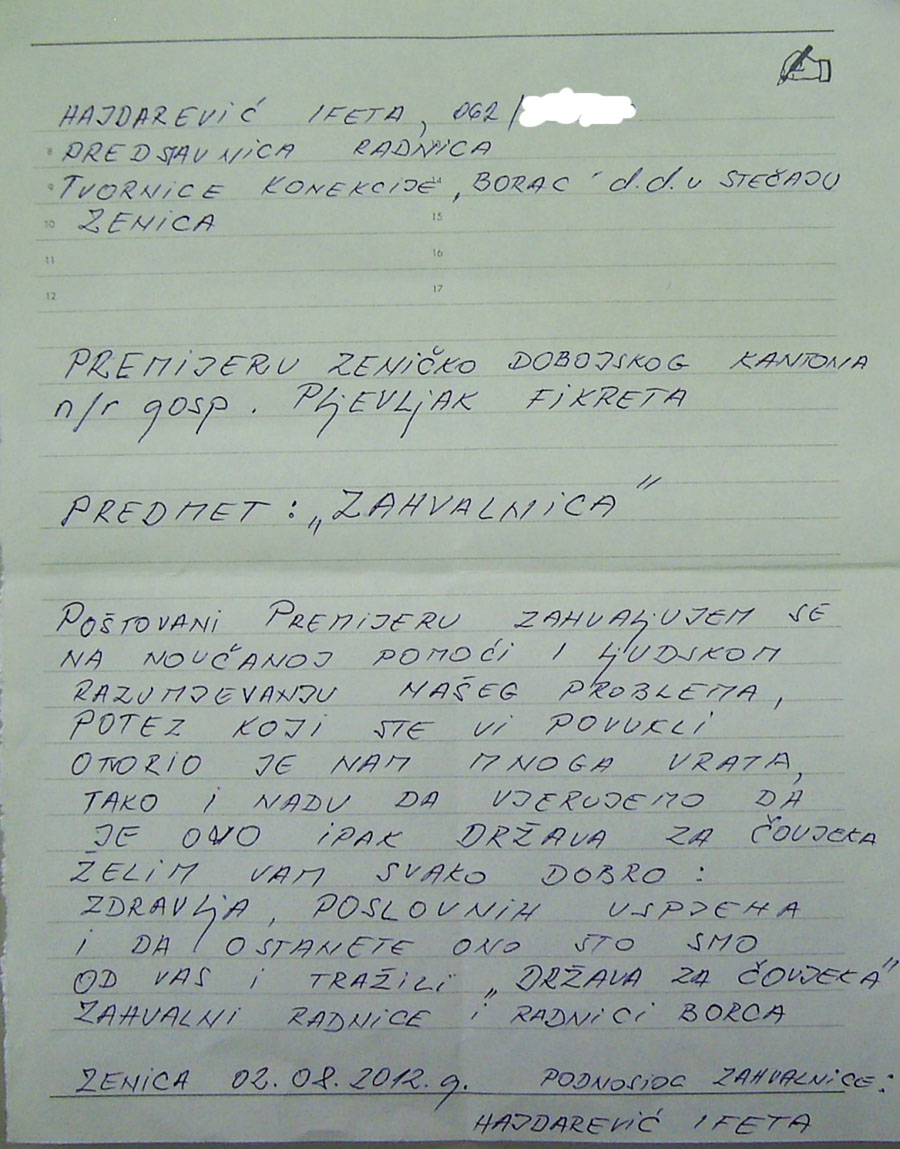 HAJDAREVIĆ IFETA, 062/
PREDSTAVNICA RADNICA
TVORNICE KONEKCIJE „BORAC" d.d. U STEČAJU
10 ZENICA 15
11 16
12 17
PREMIJERU ZENIČKO DOBOJSKOG KANTONA
n/r gosp. PLJEVLJAK FIKRETA
PREDMET: „ZAHVALNICA"
POŠTOVANI PREMIJERU ZAHVALJUJEM SE
NA NOVČANOJ POMOĆI I LJUDSKOM
RAZUMJEVANJU NAŠEG PROBLEMA,
POTEZ KOJI STE VI POVUKLI
OTVORIO JE NAM MNOGA VRATA,
TAKO I NADU DA VJERUJEMO DA
JE OVO IPAK DRŽAVA ZA ČOVJEKA
ŽELIM VAM SVAKO DOBRO:
ZDRAVLJA, POSLOVNIH USPJEHA
I DA OSTANETE ONO ŠTO SMO
OD VAS I TRAŽILI „DRŽAVA ZA ČOVJEKA"
ZAHVALNI RADNICE i RADNICI BORCA
ZENICA 02.08.2012.g. PODNOSIOC ZAHVALNICE:
HAJDAREVIĆ IFETA